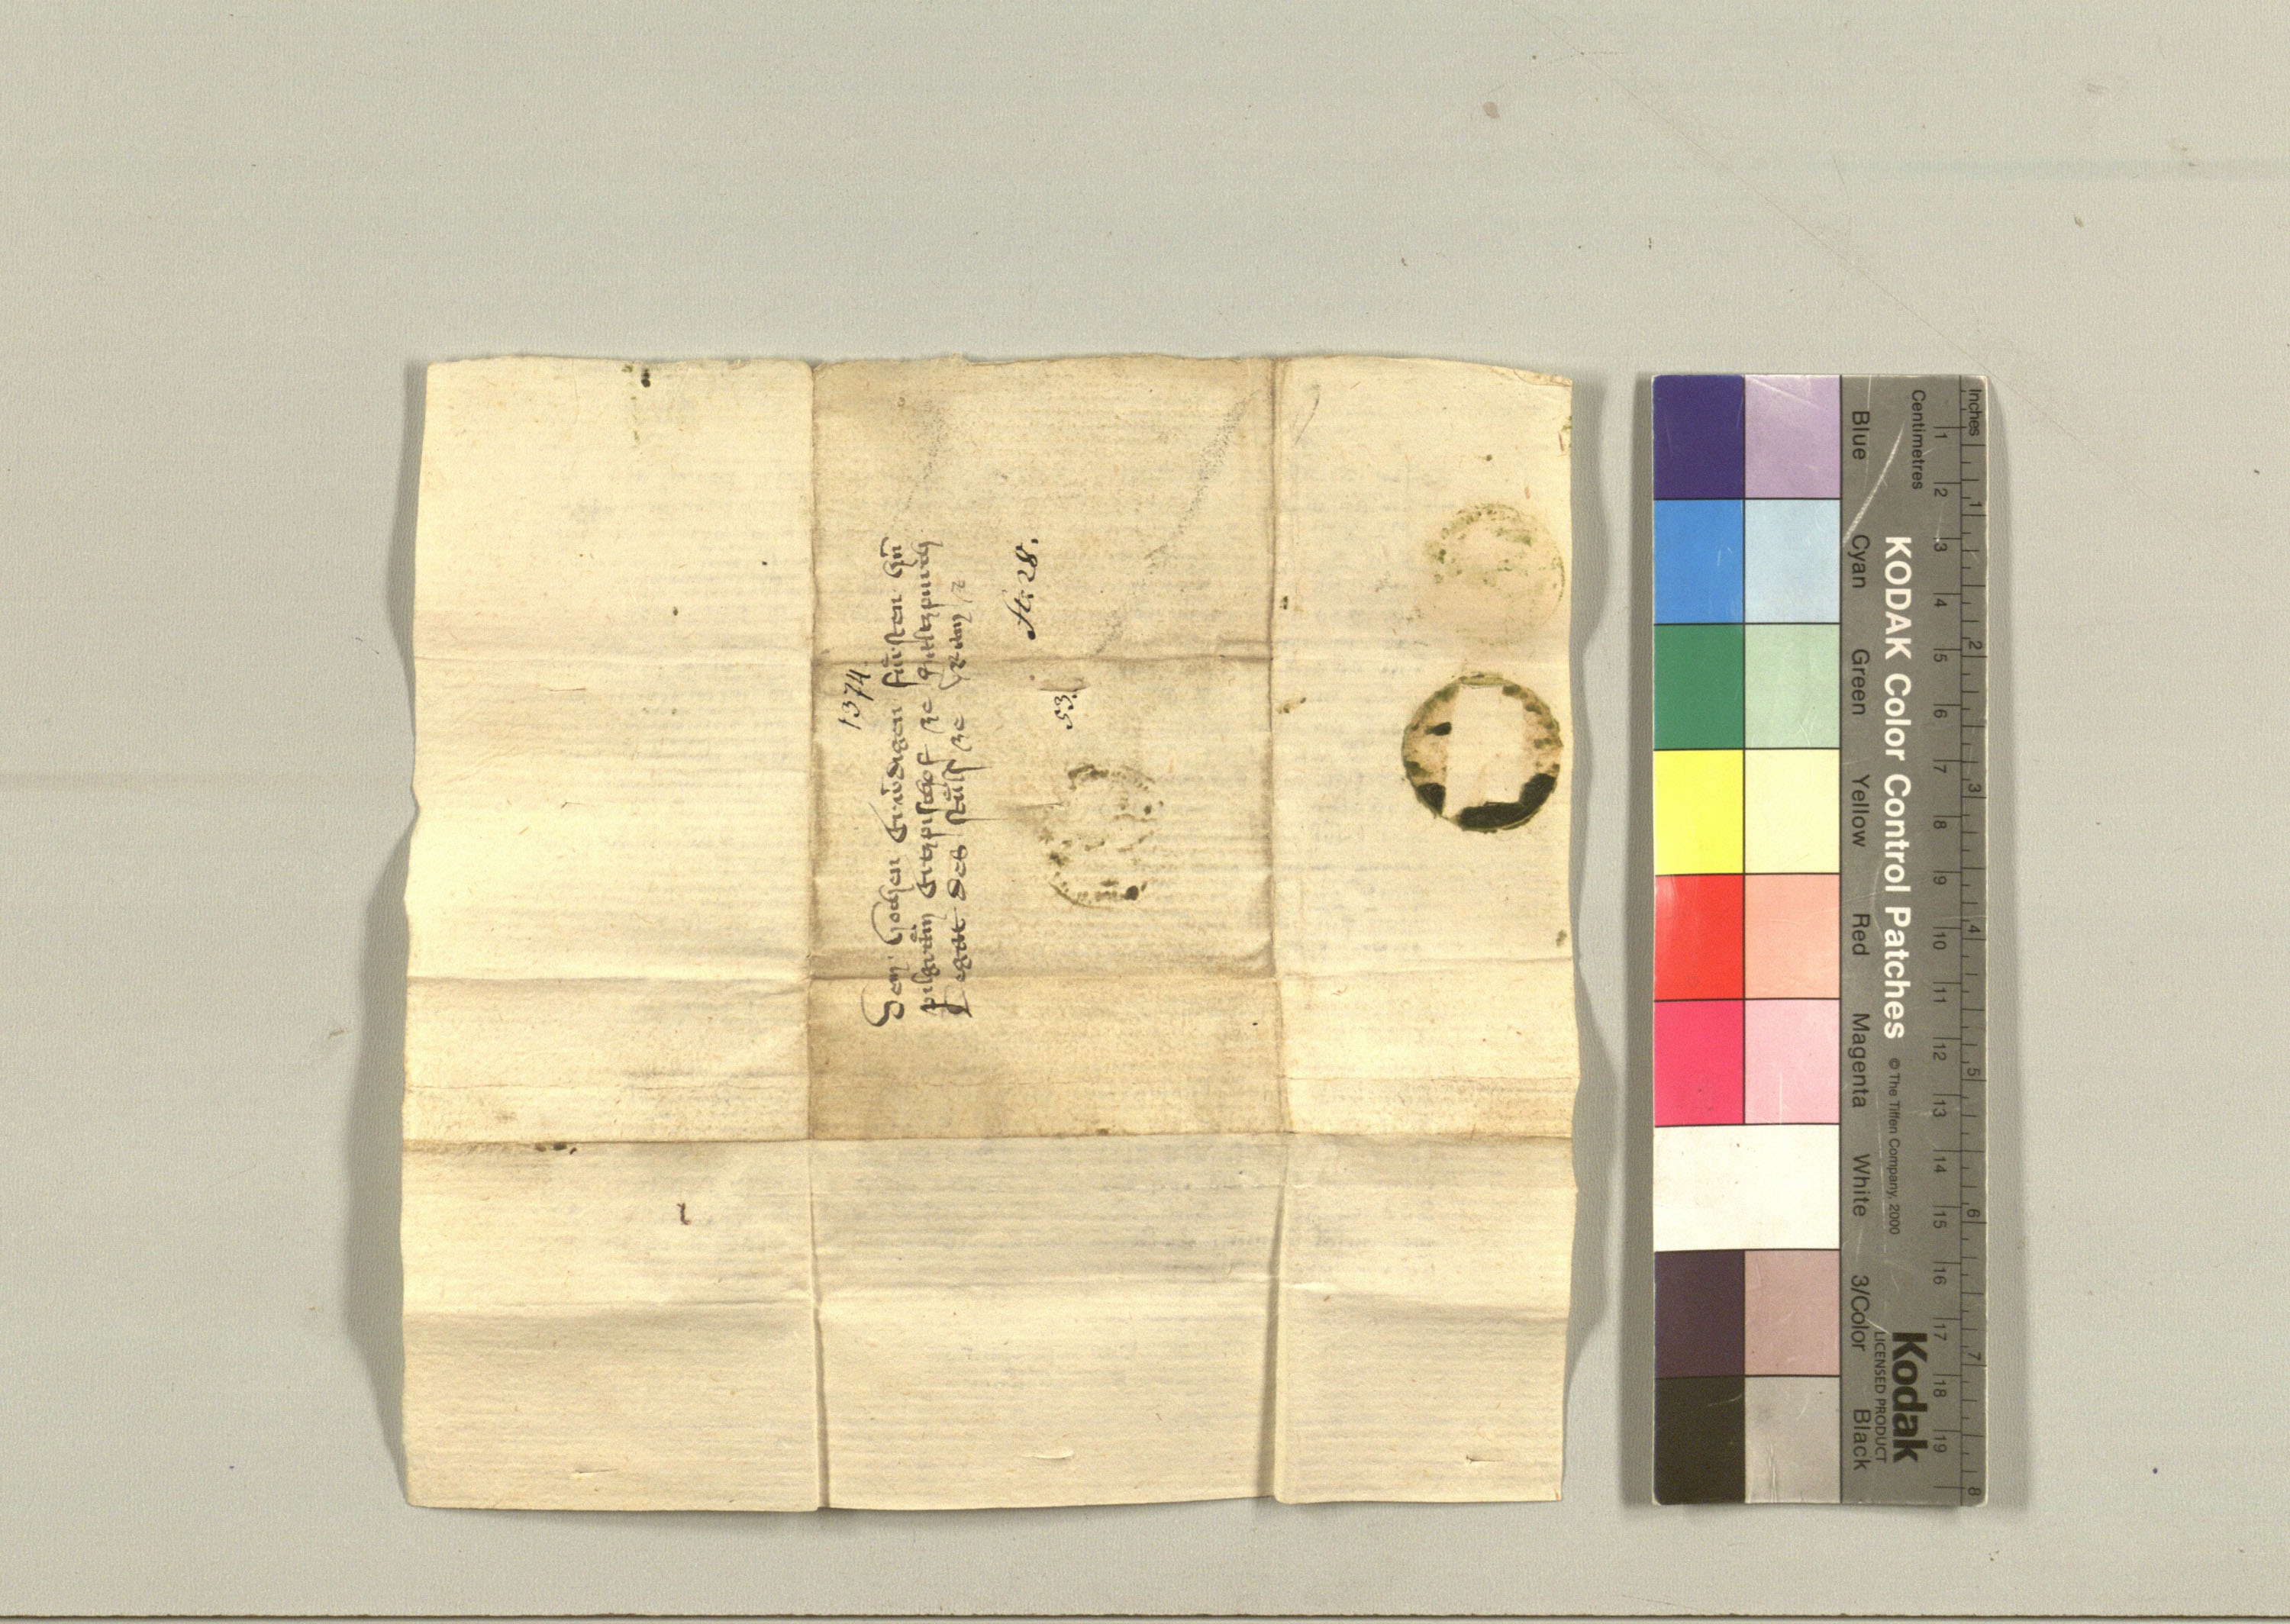 1374.
Dem Hochen Erwirdigen fürsten hern
pilgreim Ertzpischof ze Saltzpurch
Legat des stůls ze Rom
St: 28.
53.
Inches
Centimetres
1 2 3 4 5 6 7 8
1 2 3 4 5 6 7 8 9 10 11 12 13 14 15 16 17 18 19
KODAK Color Control Patches
© The Tiffen Company, 2000
Kodak
LICENSED PRODUCT
Blue Cyan Green Yellow Red Magenta White 3/Color Black